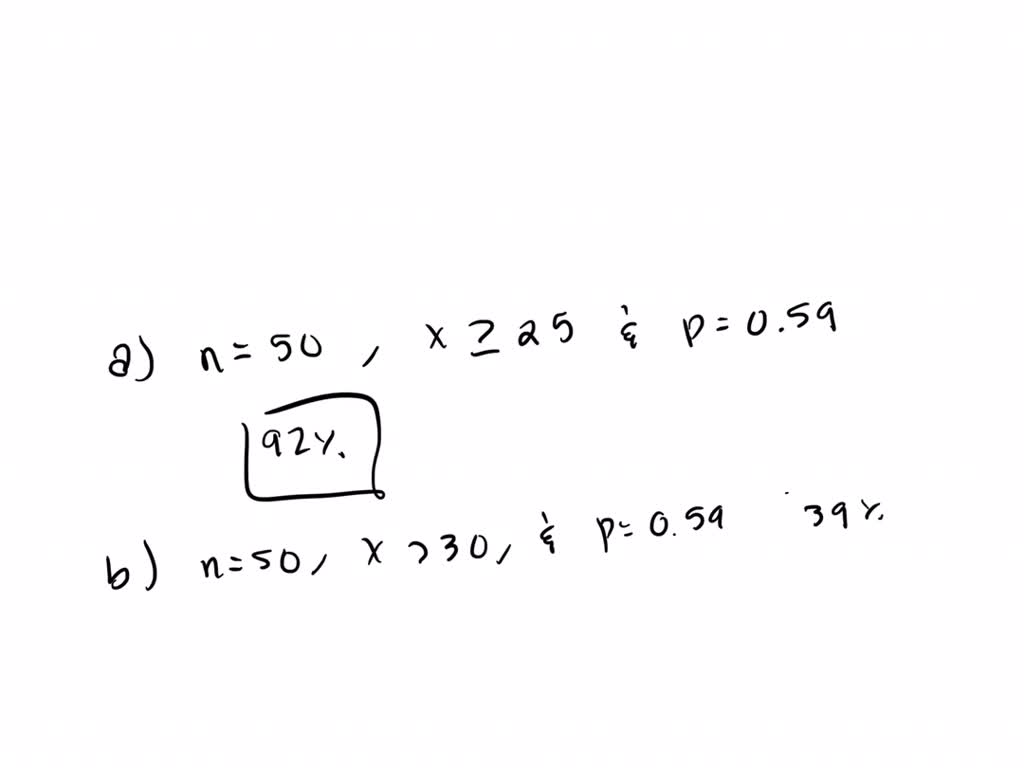 a) n=50, x ≥ 25 & p=0.59
92%.
b) n=50, x >30, & p=0.59 39%.